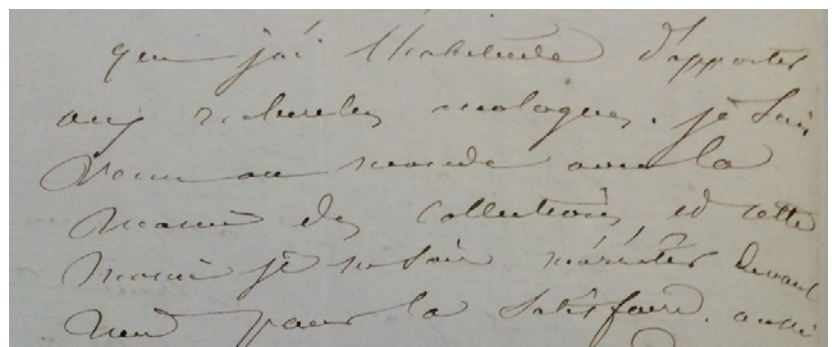 que j'ai l'habitude d'apporter
aux recherches analogues. je suis
venu au monde avec la
manie des collections, et cette
manie je ne sais m'arrêter devant
rien pour la satisfaire. aussi